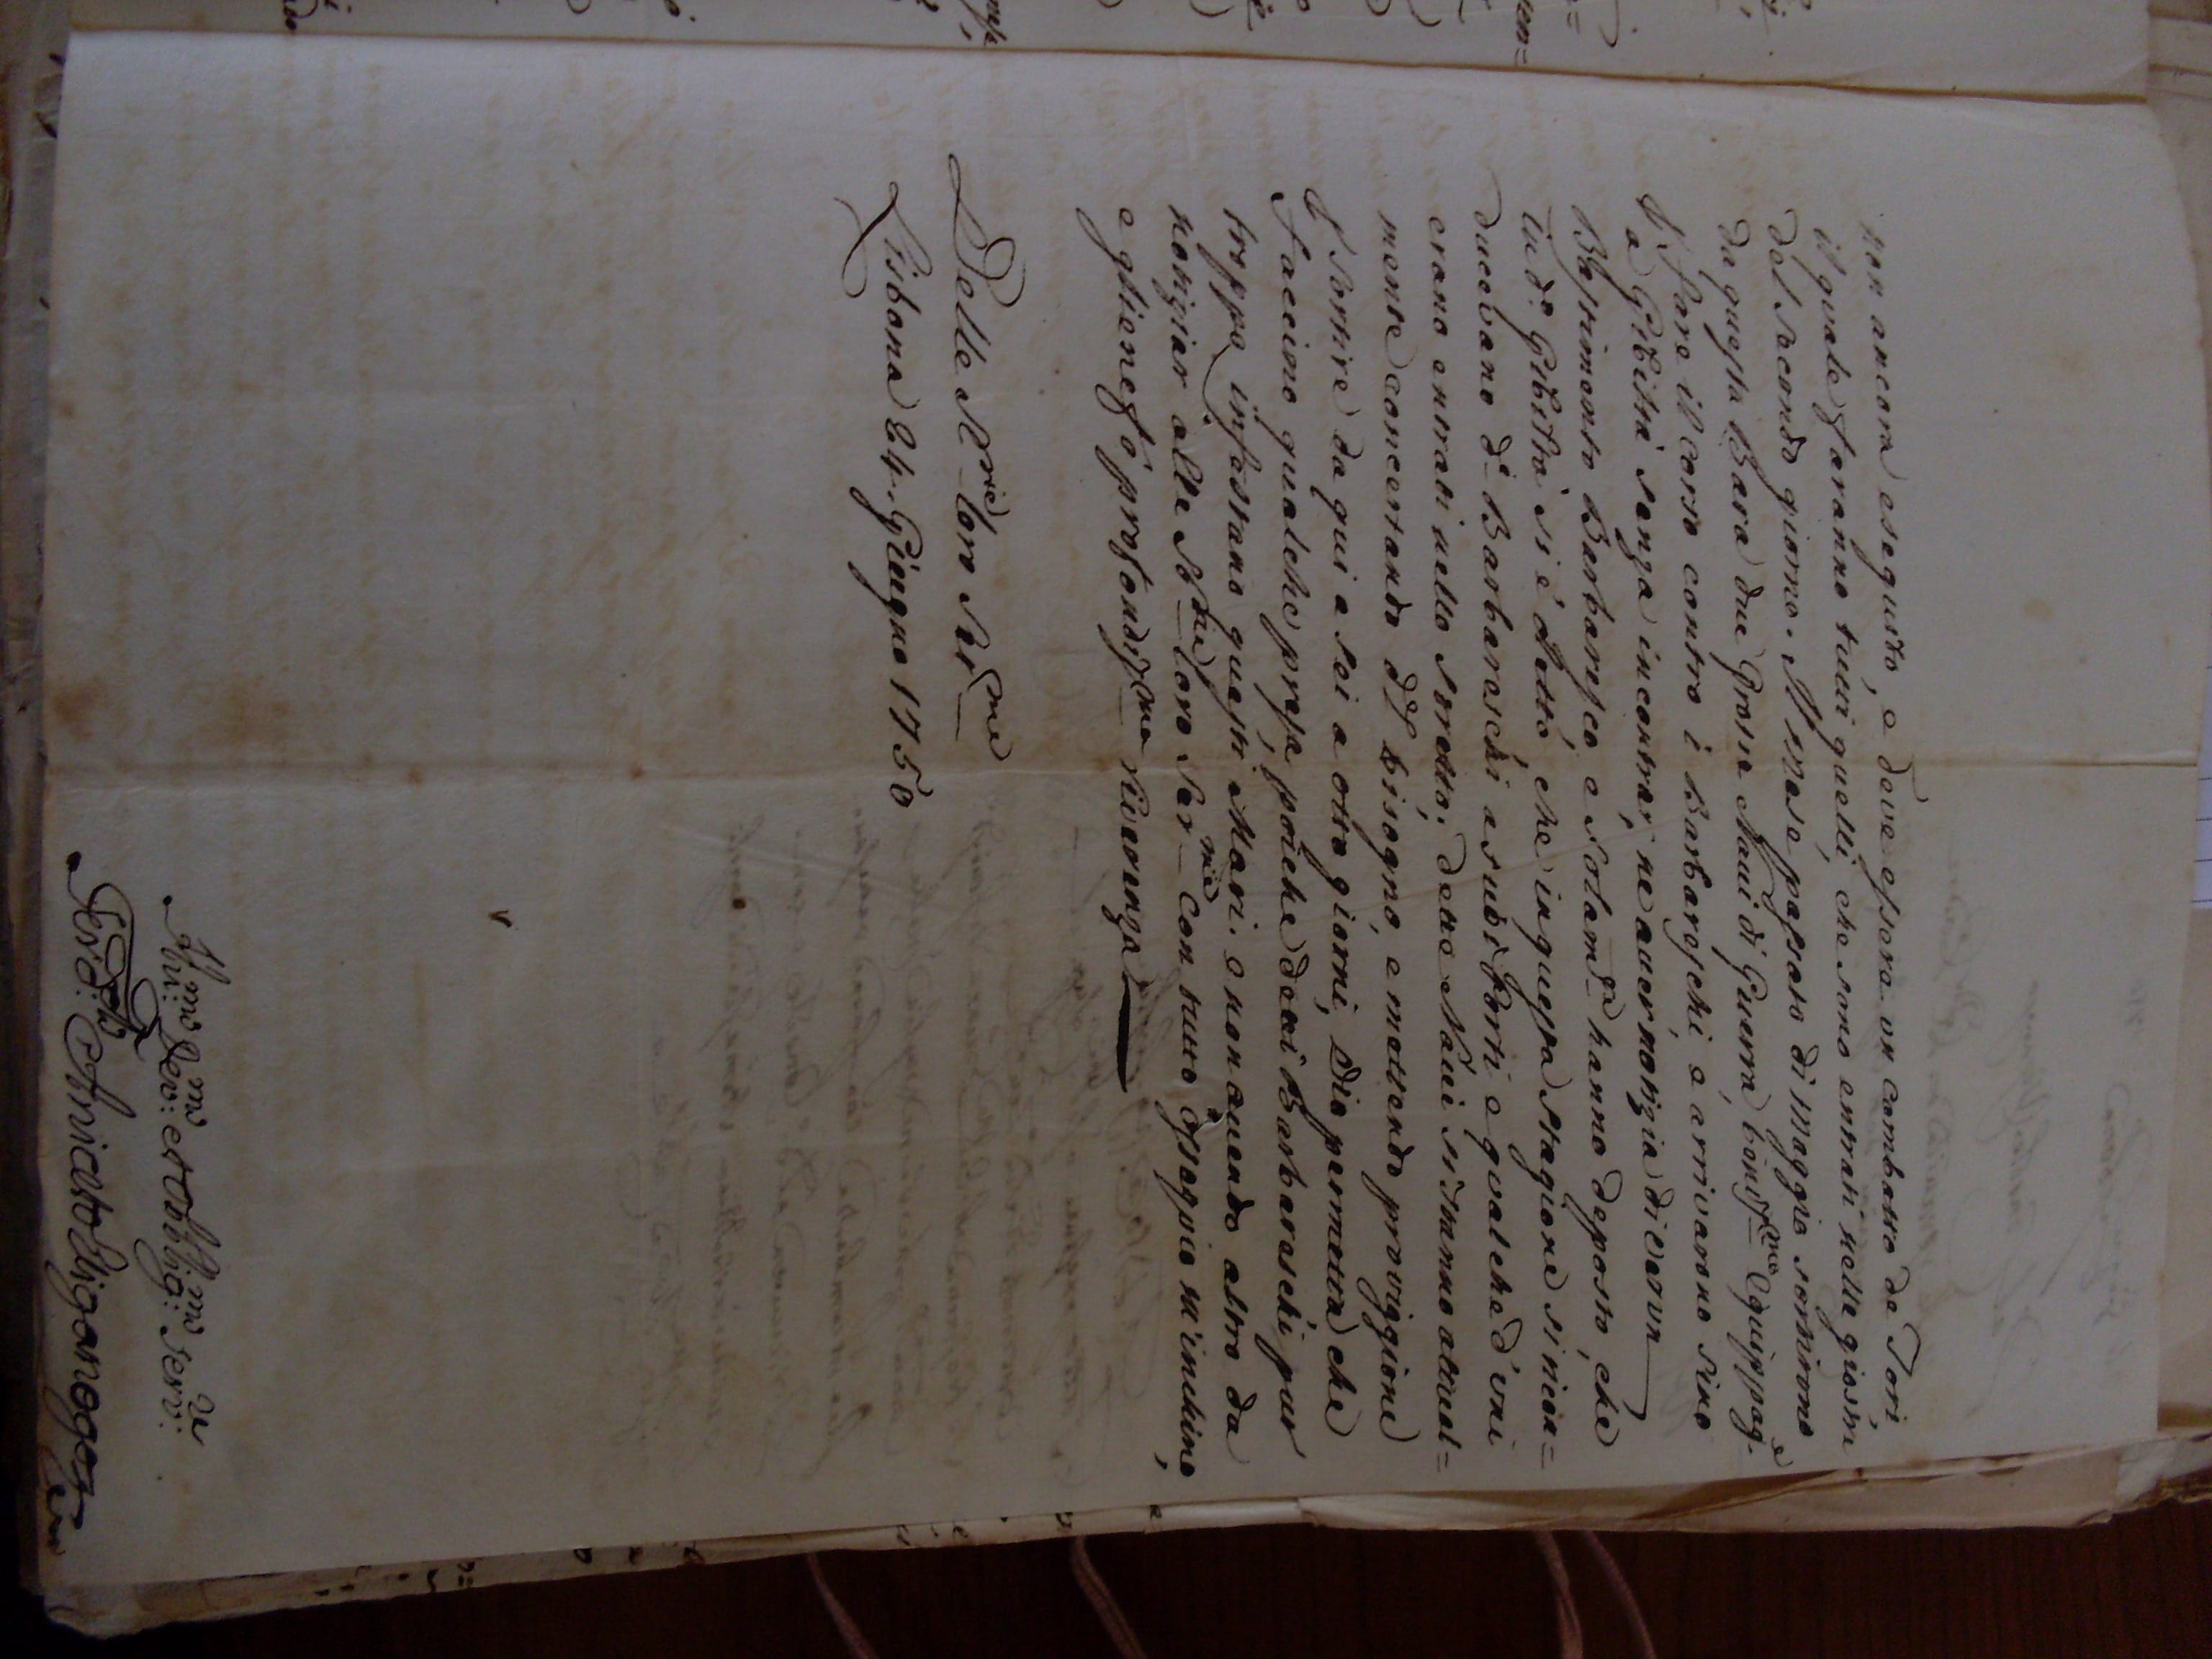 non ancora eseguito, e deve essere un combatto de Tori
il quale faranno tutti quelli, che sono entrati nelle giostre
del secondo giorno. Il mese passato di maggio sortirono
da questa Bara due Grosse Naui di Guerra, beniss.me equippag.e
p fare il corso contro i Barbareschi e arrivarono sino
a Gibiltrá senza incontrar, ne auer notizia di verun
Bastimento Barbaresco e solam.e hanno deposto, che
in d.o Gibiltrá si é detto, che in questa stagione si ricon=
ducevano d.i Barbareschi a suoi Porti e qualched'uni
erano entrati nello stretto; dette Naui si stanno attual=
mente concertando del bisogno, e mettendo provigione
p sortire da qui a sei a otto giorni, Dio permetta che
faccino qualche presa, poiche detti Barbareschi pur
troppo infestano questi Mari. e non auendo altro da
notiziar alle SS.rie loro Ser.me con tutto ossequio m'inchino,
e gliene fó profondiss.ma riverenza
Delle SS.rie loro Ser.me
Lisbona 24. Giugno 1750
Um:mo Dev:mo et Obblig:mo Serv:re